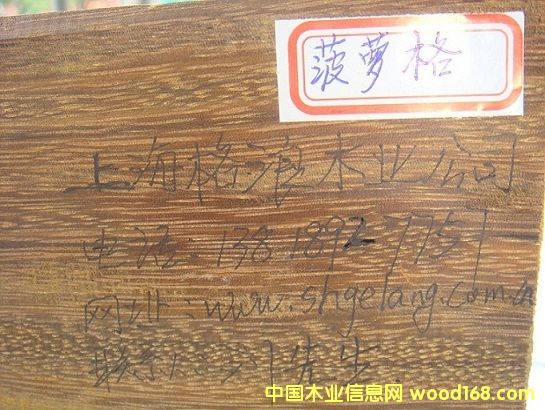 菠萝格
上海格浪木业公司
电话:138 1892 7757
网址:www.shgelang.com.cn
联系人:
先生
中国木业信息网 wood168.com